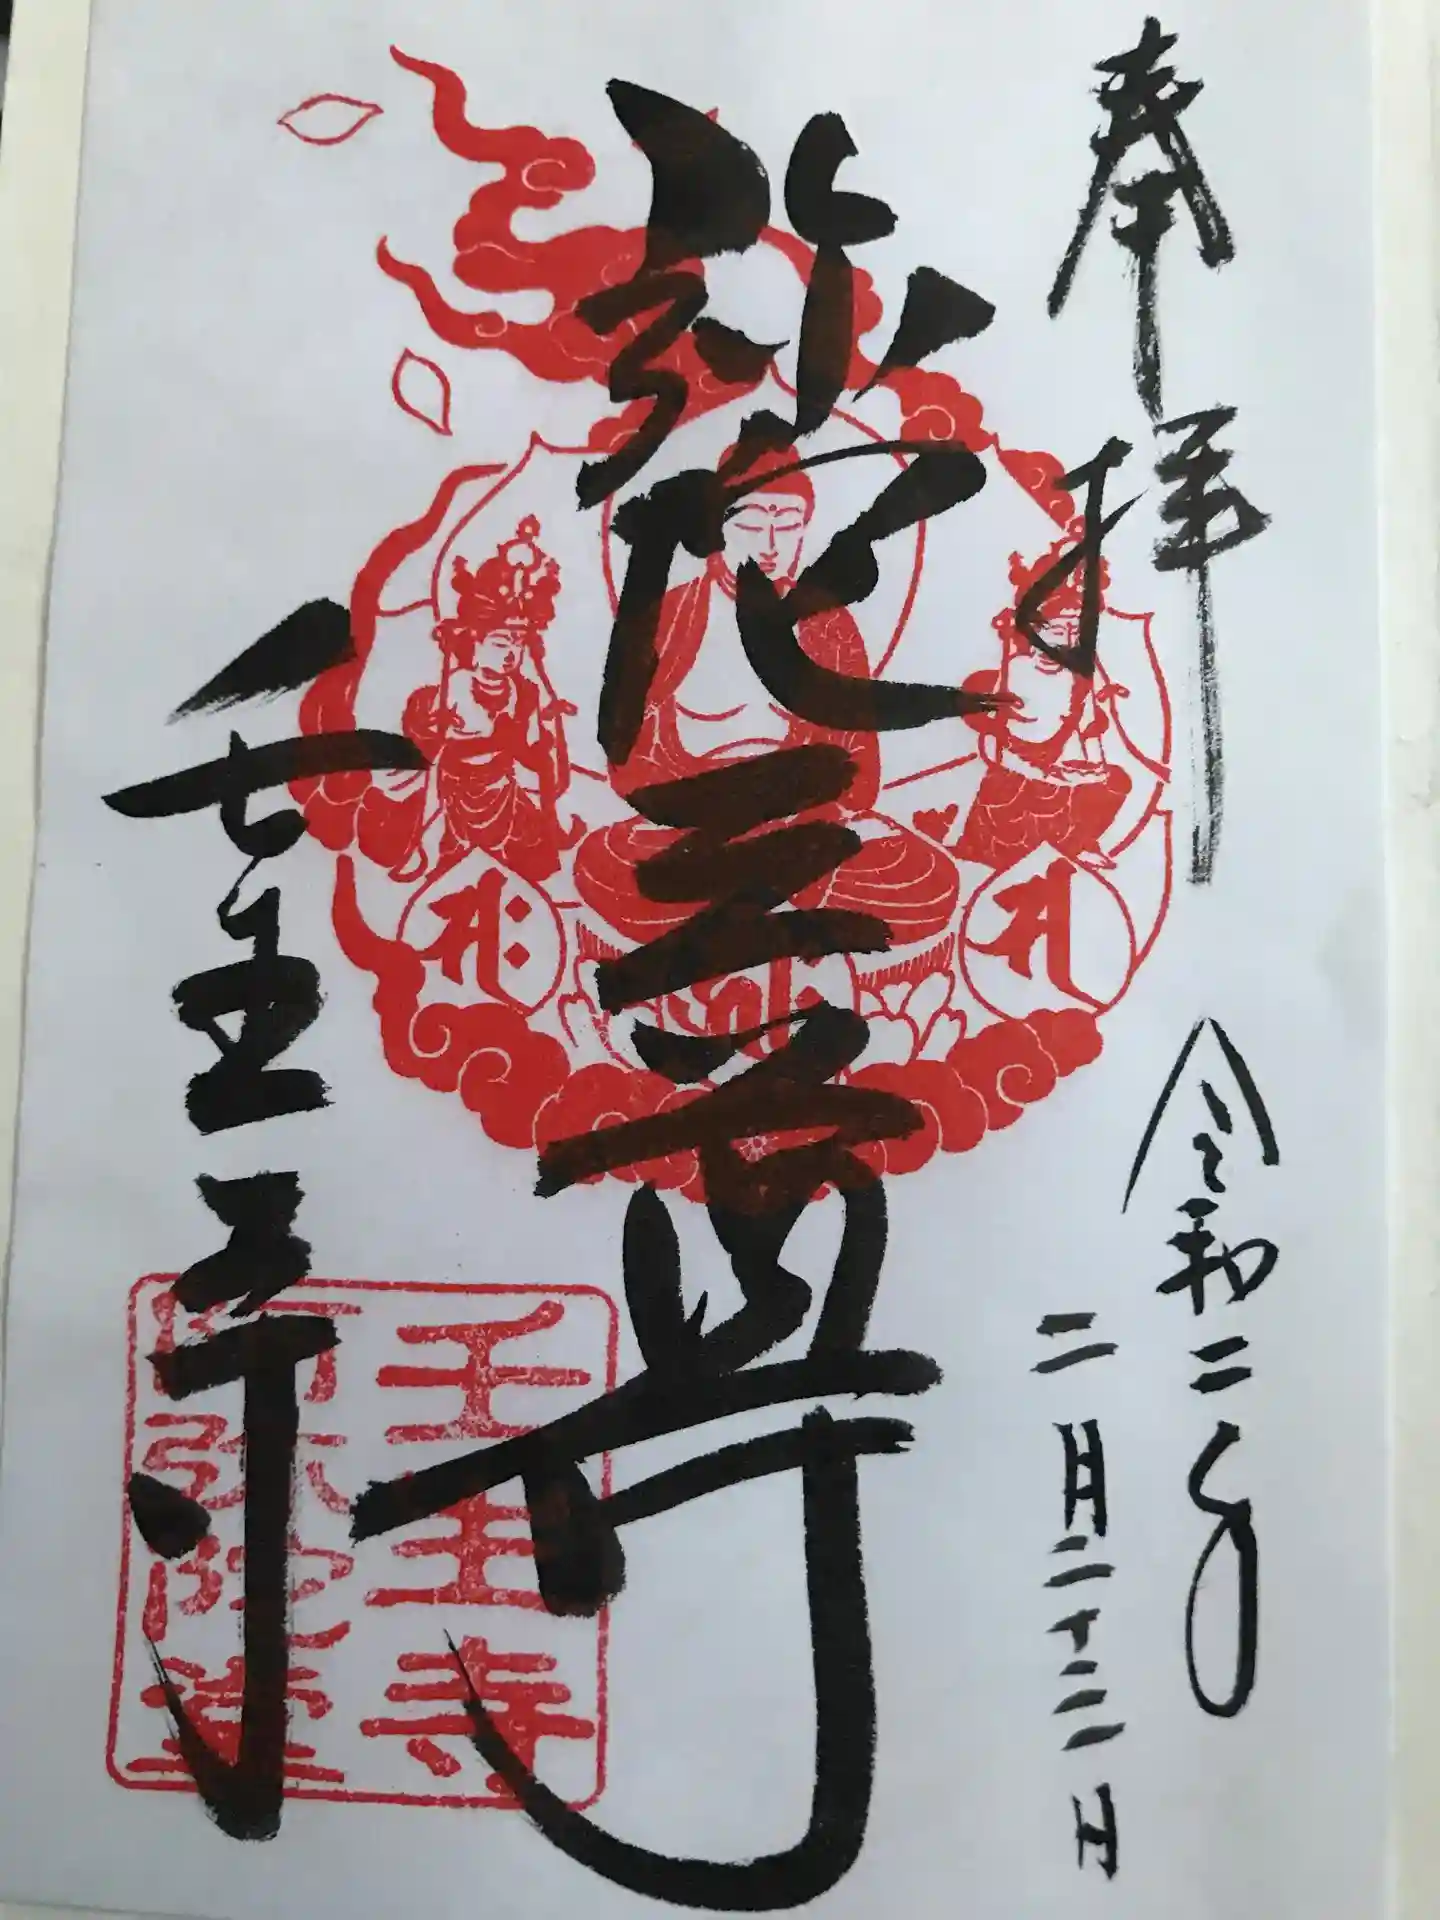 奉拝
令和二年
二月二十三日
弥陀三尊
壬生寺
壬生寺
阿弥陀堂